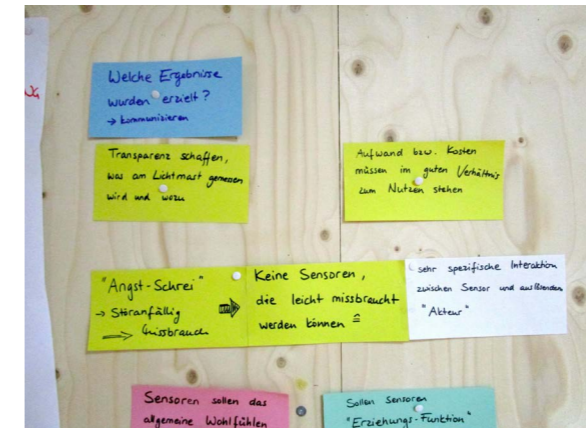 Welche Ergebnisse
wurden erzielt?
→ kommunizieren
Transparenz schaffen,
was am Lichtmast gemessen
wird und wozu
Aufwand bzw. Kosten
müssen im guten Verhältnis
zum Nutzen stehen
"Angst-Schrei"
→ Störanfällig
⟹ Missbrauch
Keine Sensoren,
die leicht missbraucht
werden können
sehr spezifische Interaktion
zwischen Sensor und auslösenden
"Akteur"
Sensoren sollen das
allgemeine Wohlfühlen
Sollen Sensoren
"Erziehungs-Funktion"